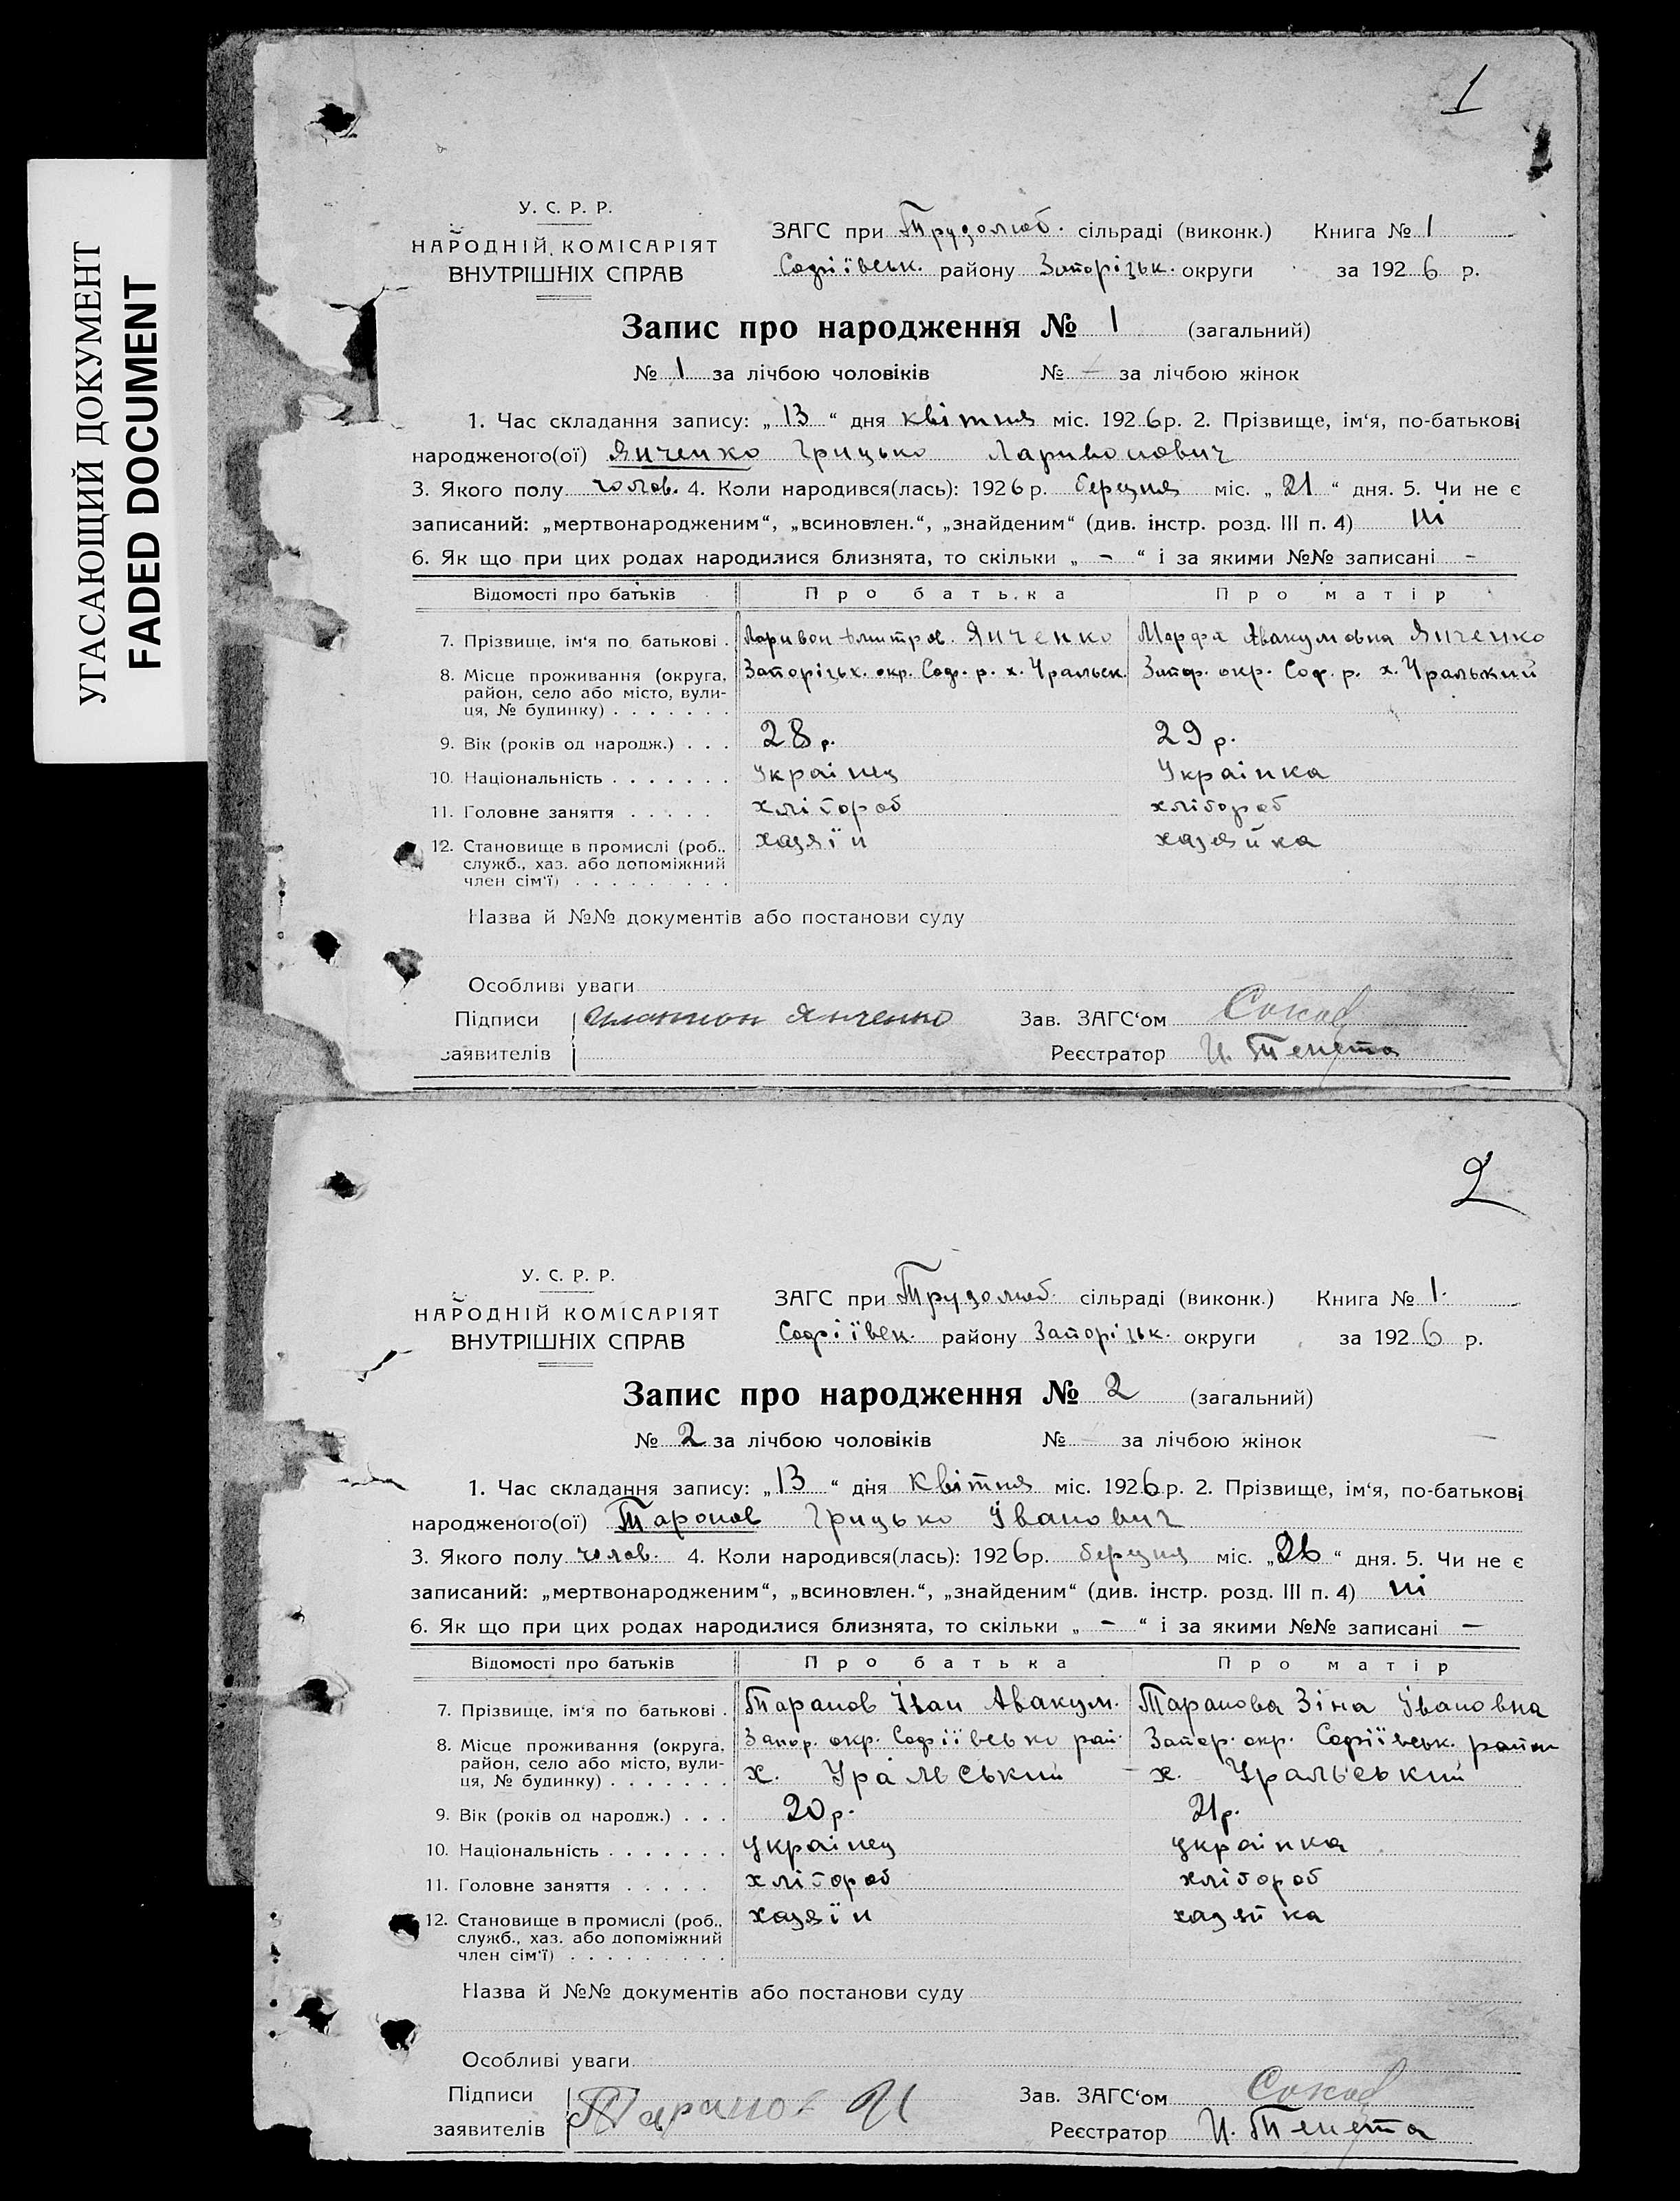 УГАСАЮЩИЙ ДОКУМЕНТ
FADED DOCUMENT
1
У. С. Р. Р.
НАРОДНІЙ КОМІСАРІЯТ
ВНУТРІШНІХ СПРАВ
ЗАГС при Трудолюб. сільраді (виконк.) Книга № 1
Софіївськ. району Запорізьк. округи за 1926 р.
Запис про народження № 1 (загальний)
№ 1 за лічбою чоловіків № – за лічбою жінок
1. Час складання запису: „13“ дня квітня міс. 1926 р. 2. Прізвище, ім‘я, по-батькові
народженого(ої) Янченко Грицько Ларивонович
3. Якого полу чолов. 4. Коли народився(лась): 1926 р. березня міс. „21“ дня. 5. Чи не є
записаний: „мертвонародженим“, „всиновлен.“, „знайденим“ (див. інстр. розд. III п. 4) ні
6. Як що при цих родах народилися близнята, то скільки „ – “ і за якими №№ записані –
Відомості про батьків Про батька Про матір
7. Прізвище, ім‘я по батькові . Ларивон Дмитров. Янченко Марфа Авакумовна Янченко
8. Місце проживання (округа, Запорізьк. окр. Соф. р. х. Уральск. Запор. окр. Соф. р. х. Уралький
район, село або місто, вули-
ця, № будинку) . . . . . . .
9. Вік (років од народж.) . . . 28 р. 29 р.
10. Національність . . . . . . . Українец Українка
11. Головне заняття . . . . . хлібороб хлібороб
12. Становище в промислі (роб., хазяїн хазяйка
служб., хаз. або допоміжний
член сім‘ї) . . . . . . . . .
Назва й №№ документів або постанови суду
Особливі уваги
Підписи Янченко Зав. ЗАГС‘ом
заявителів Реєстратор И. Тенета
2
У. С. Р. Р.
НАРОДНІЙ КОМІСАРІЯТ
ВНУТРІШНІХ СПРАВ
ЗАГС при Трудолюб. сільраді (виконк.) Книга № 1.
Софіївськ. району Запорізьк. округи за 1926 р.
Запис про народження № 2 (загальний)
№ 2 за лічбою чоловіків № – за лічбою жінок
1. Час складання запису: „13“ дня Квітня міс. 1926 р. 2. Прізвище, ім‘я, по-батькові
народженого(ої) Таранов Грицько Іванович
3. Якого полу чолов. 4. Коли народився(лась): 1926 р. березня міс. „26“ дня. 5. Чи не є
записаний: „мертвонародженим“, „всиновлен.“, „знайденим“ (див. інстр. розд. III п. 4) ні
6. Як що при цих родах народилися близнята, то скільки „ – “ і за якими №№ записані –
Відомості про батьків Про батька Про матір
7. Прізвище, ім‘я по батькові . Таранов Іван Авакум. Таранова Зіна Івановна
8. Місце проживання (округа, Запор. окр. Софіївсько рай. Запор. окр. Софіївськ. район
район, село або місто, вули-
ця, № будинку) . . . . . . . х. Уральський х. Уральський
9. Вік (років од народж.) . . . 20 р. 21 р.
10. Національність . . . . . . . українец українка
11. Головне заняття . . . . . хлібороб хлібороб
12. Становище в промислі (роб., хазяїн хазяйка
служб., хаз. або допоміжний
член сім‘ї) . . . . . . . . .
Назва й №№ документів або постанови суду
Особливі уваги
Підписи Таранов И Зав. ЗАГС‘ом
заявителів Реєстратор И. Тенета